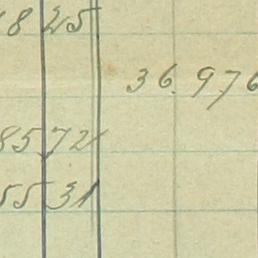 18 25
36.976
85 72
55 31